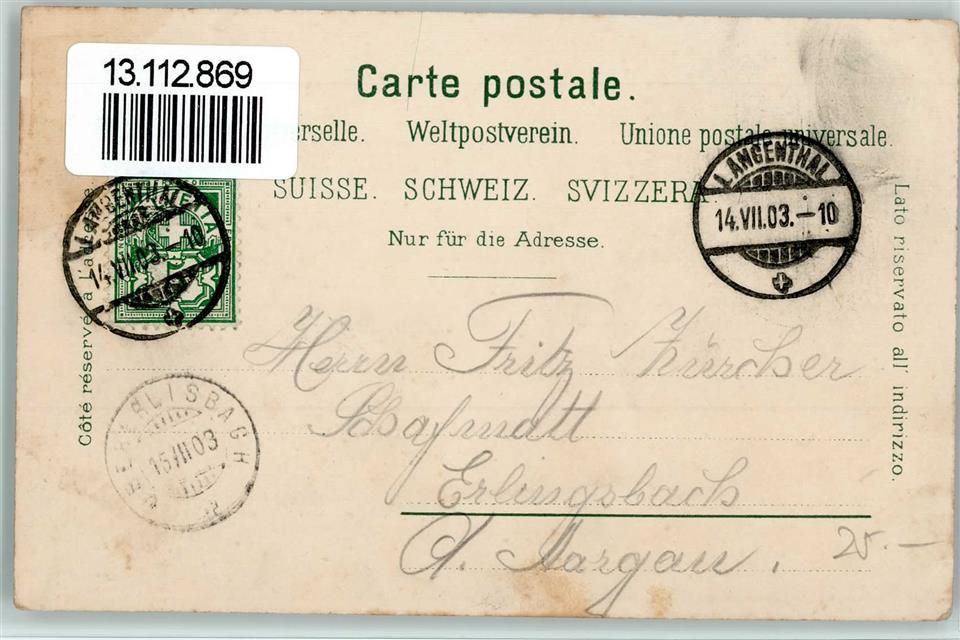 13.112.869
Carte postale.
erselle. Weltpostverein. Unione postale universale.
SUISSE. SCHWEIZ. SVIZZERA
Nur für die Adresse.
LANGENTHAL
14.VII.03.–10
LANGENTHAL
14.VII.03.–10
Côté réservé à l'adresse
Lato riservato all' indirizzo.
ERLISBACH
15 VII 03
Herrn Fritz Zürcher
Schafmatt
Erlingsbach
Ct. Aargau.
25.—